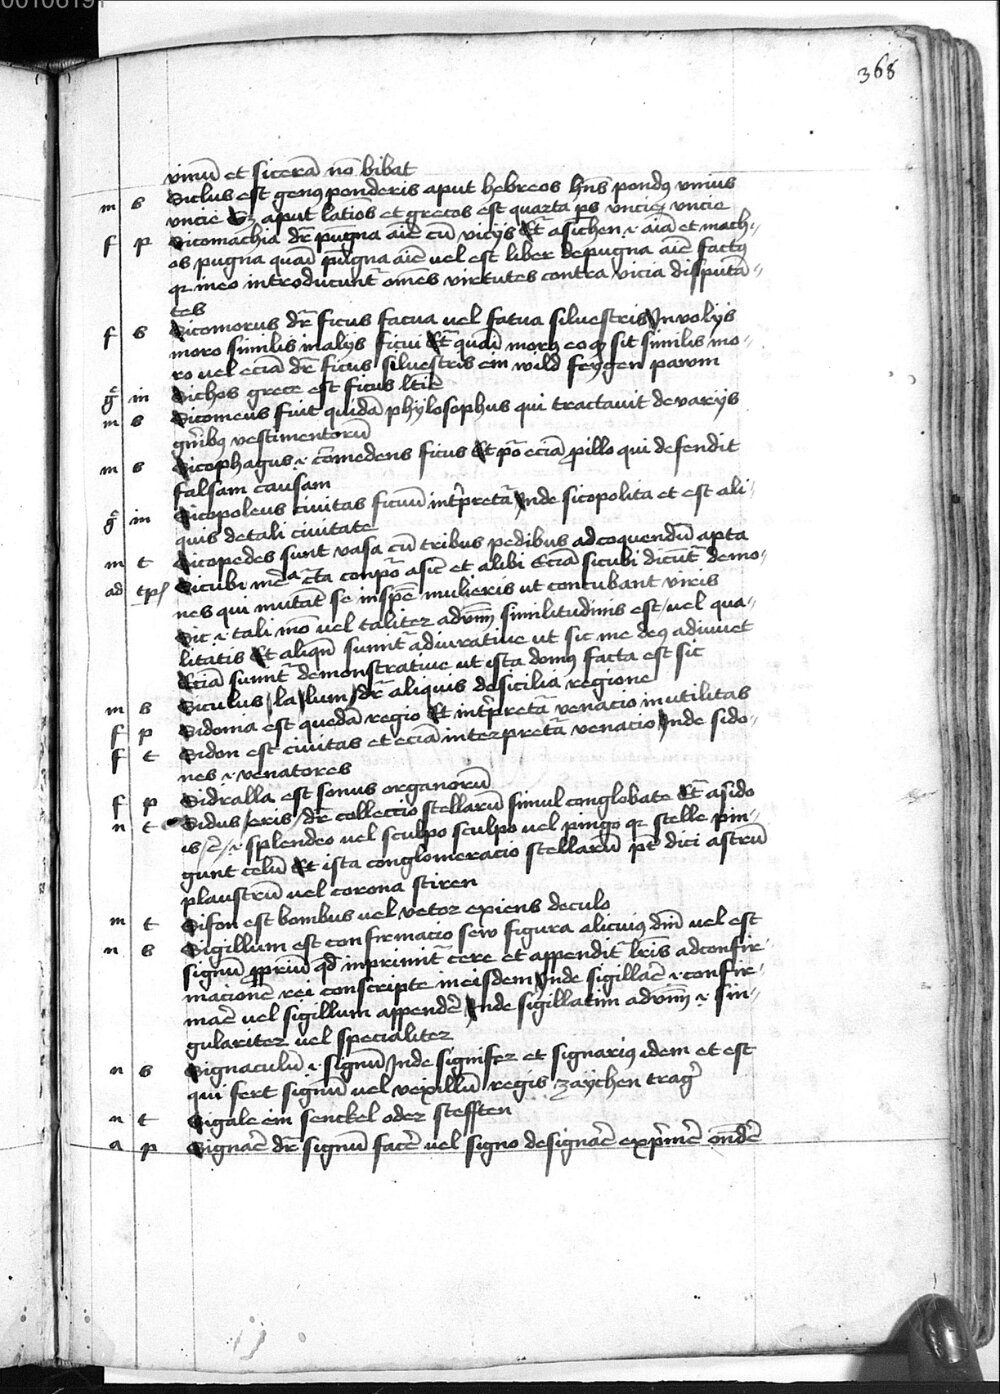 368
vinū et sicerā nō bibat
m s Siclus est genꝰ ponderis aput hebreos hn̄s pondꝰ vnius
vncie Sꝫ aput latinōs et grecos est quarta ps vncie vncie
f p Sicomachia dr̄ pugna aīe cū vicijs Et̄ asichen .i. aīa et mach-
os pugna quasi pugna aīe vel est liber de pugna aīe factꝰ
qꝛ in eo introducunt̄ om̄es virtutes contra vicia disputā-
tes
f s Sicomorus dr̄ ficus facua vel fatua siluestris In folijs
moro similis in alijs ficui Et̄ quasi morꝰ eo qꝫ sit similis mo-
ro vel eciā dr̄ ficus siluestris ein wild feygen pawm
g̊ in Sichos grece est ficus lt̄ie
m s Sicomeus fuit quidā phylosophus qui tractauit de varijs
gn̄ibꝰ vestimentorū
m s Sicophagus .i. cōmedens ficus Et pō eciā p illo qui defendit
falsam causam
g̊ in Sicopoleus ciuitas ficuū intp̄retā Inde sicopolita et est ali-
quis de tali ciuitate
m t Sicopedes sunt vasa cū tribus pedibus ad coquendū apta
ad tp̄l Sicubi conpō a sic et alibi Eciā sicubi dicūt demo-
nes qui mutāt se in spēm mulieris ut concubant viris
Sic .i. tali mō vel taliter aduīm similitudinis est vel qua-
litatis Et aliqn̄ sumit̄ adiuratiue ut sic me deꝰ adiuuet
Eciā sumit̄ demonstratiue ut ista domꝰ facta est sic
m s Siculus /la/lum/ dr̄ aliquis de sicilia regione
f p Sidonia est quedā regio Et intp̄retā venacio inutilitas
f t Sidon est ciuitas et eciā interpretā venacio Inde sido-
nes .i. venatores
f p Sidralla est sonus organorū
n t Sidus /eris/ dr̄ colleccio stellarū simul conglobate Et̄ a sido
is /e/ .i. splendeo vel sculpo sculpo vel pingo qꝛ stelle pin-
gunt celū Et ista conglomeracio stellarū pt̄ dici astrū
plaustrū vel corona stiren
m t Sifon est bombus vel vetor exiens de culo
n s Sigillum est confirmacio sew figura alicuiꝰ dn̄i vel est
signū ꝓpriū qd̄ inprimit̄ cere et appendit̄ lr̄is ad confir-
macionē rei conscripte in eisdem Inde sigillāe .i. confir-
māe vel sigillum appendē Inde sigillatim aduīm .i. sin-
gulariter vel specialiter
n s Signaculū .i. signū Inde signifer et signariꝰ idem et est
qui fert signū vel vexillū regis zaychen trag̉
n t Sigale ein senckel oder stefften
a p Signāe dr̄ signū facē vel signo designāe exp̄mē on̄dē